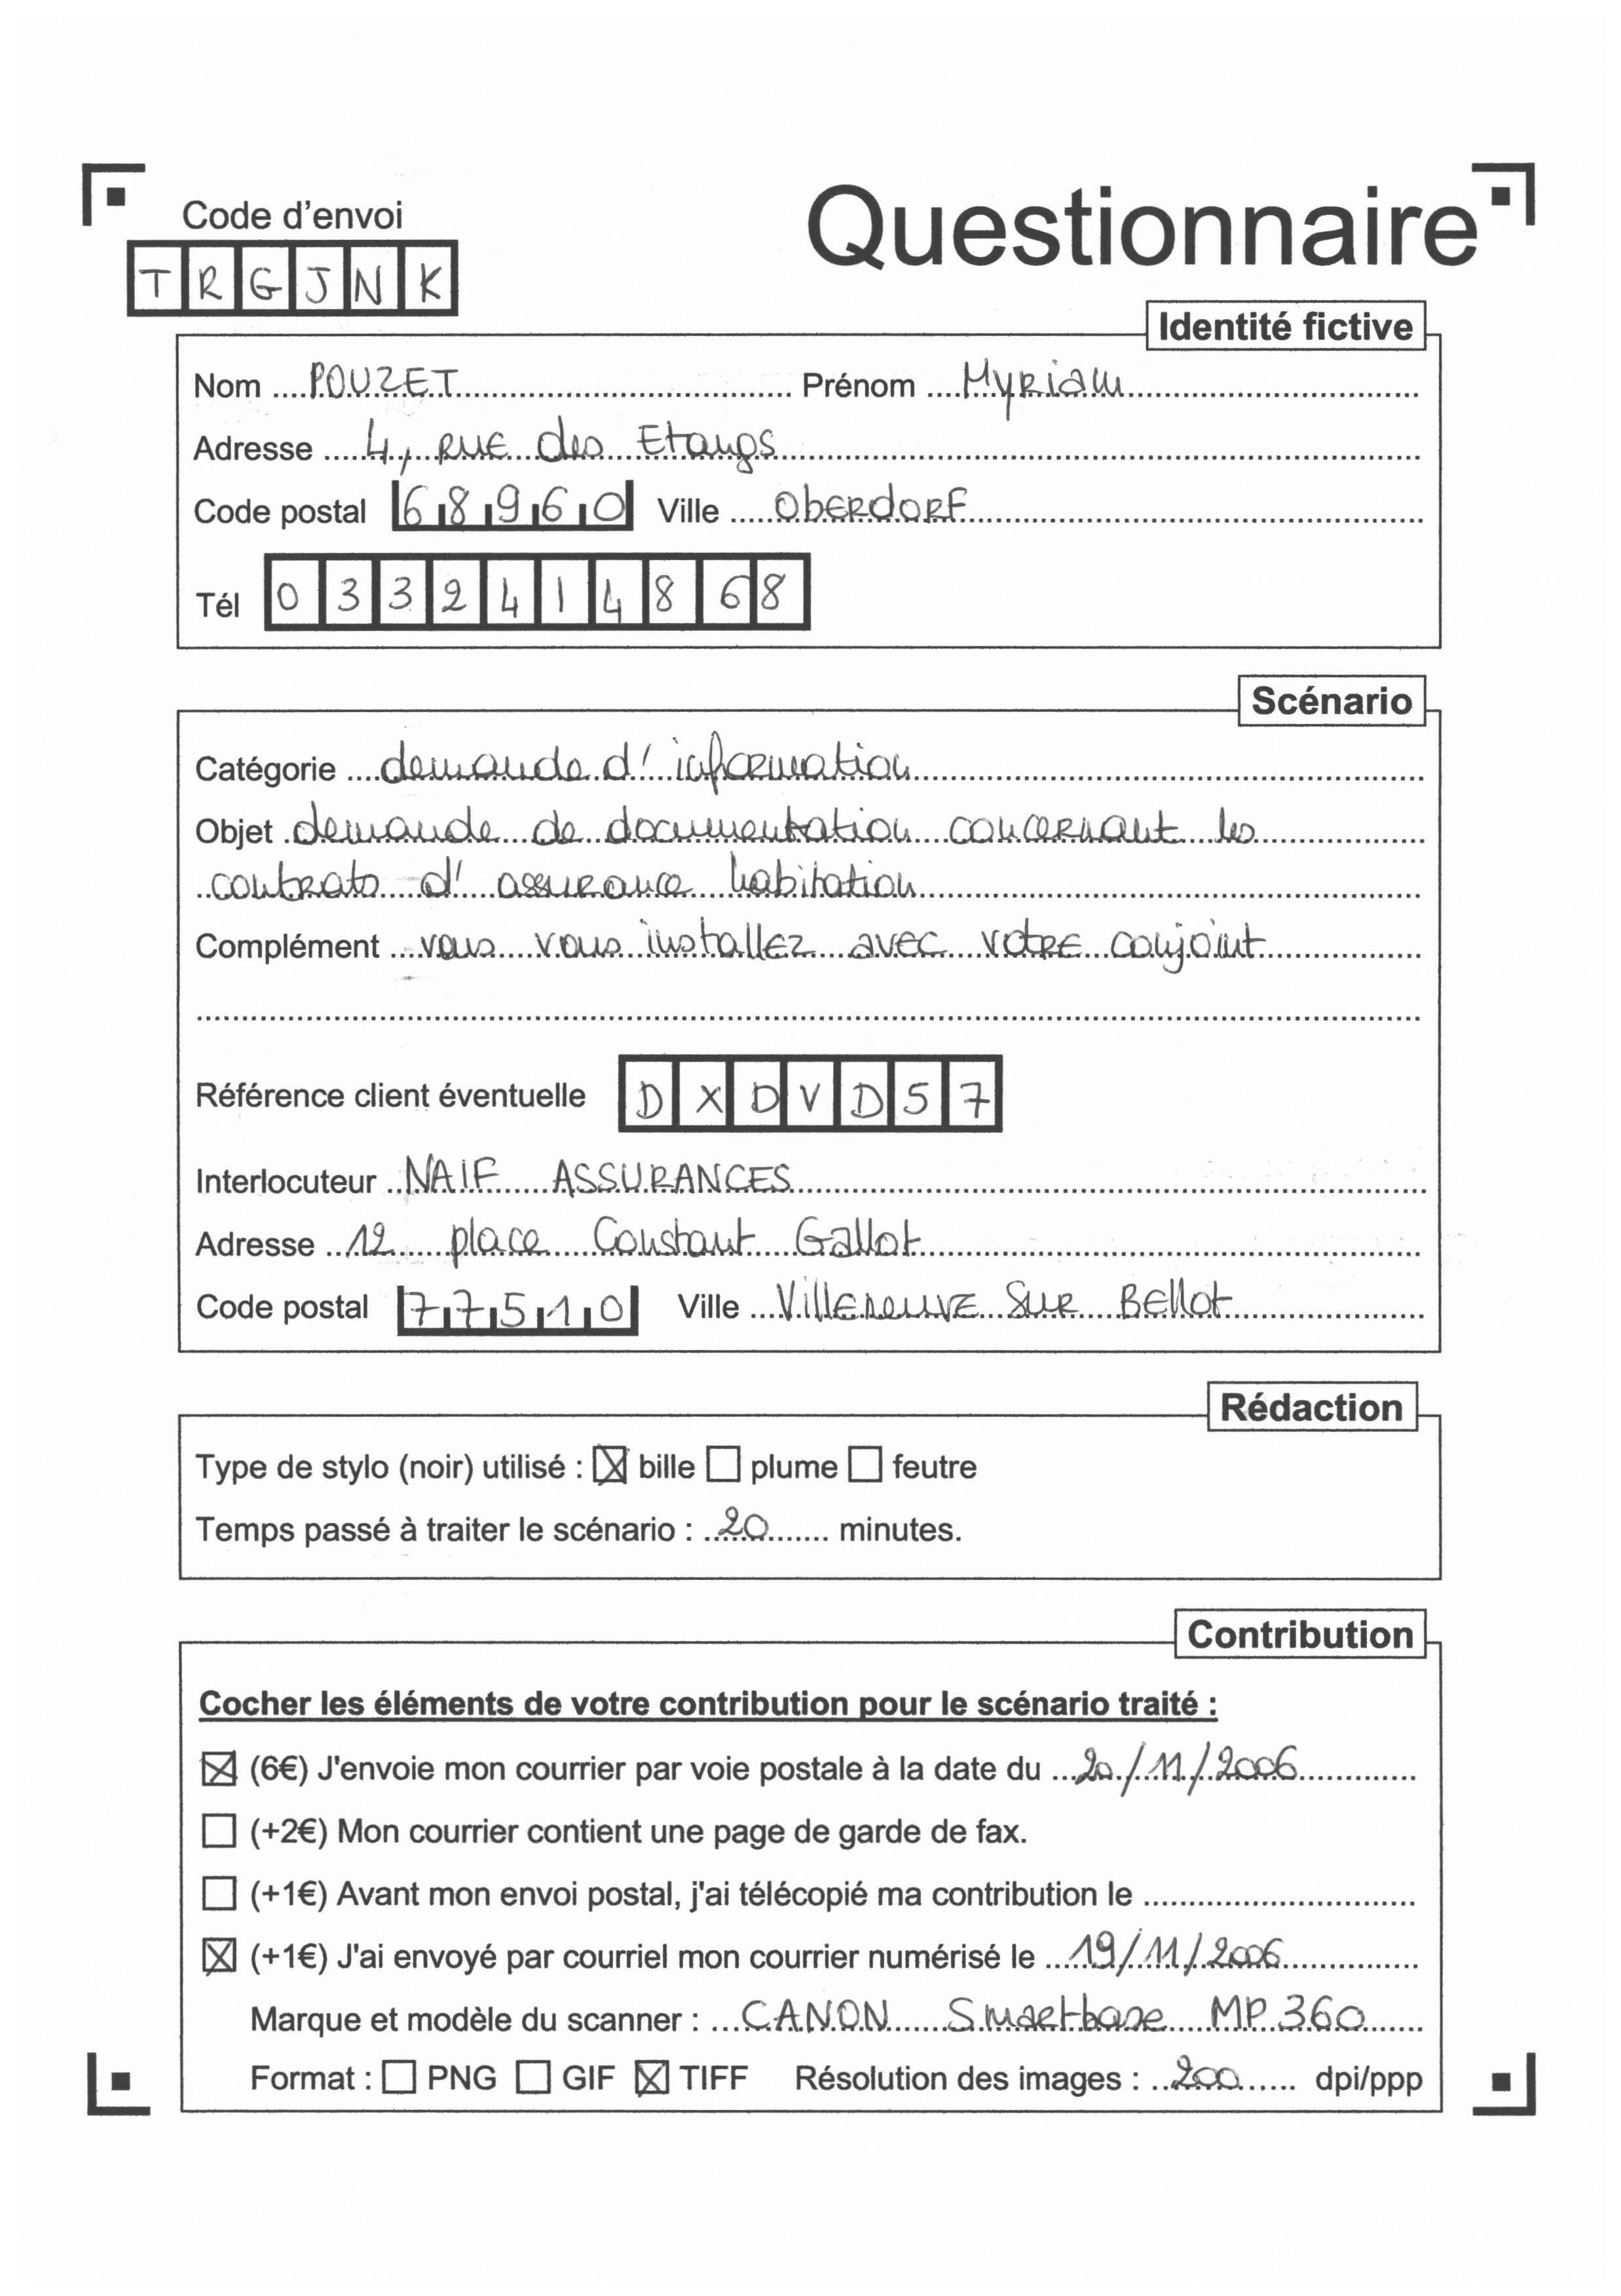 Code d'envoi
Questionnaire
T R G J N K
Identité fictive
Nom POUZET Prénom Myriam
Adresse 4, rue des Etangs
Code postal 68960 Ville Oberdorf
Tél 0332414868
Scénario
Catégorie demande d'information
Objet demande de documentation concernant les
contrats d'assurance habitation
Complément vous vous installez avec votre conjoint
Référence client éventuelle D X D V D 5 7
Interlocuteur NAIF ASSURANCES
Adresse 12 place Constant Gallot
Code postal 77510 Ville Villeneuve Sur Bellot
Rédaction
Type de stylo (noir) utilisé : ☒ bille ☐ plume ☐ feutre
Temps passé à traiter le scénario : 20 minutes.
Contribution
Cocher les éléments de votre contribution pour le scénario traité :
☒ (6€) J'envoie mon courrier par voie postale à la date du 20/11/2006
☐ (+2€) Mon courrier contient une page de garde de fax.
☐ (+1€) Avant mon envoi postal, j'ai télécopié ma contribution le
☒ (+1€) J'ai envoyé par courriel mon courrier numérisé le 19/11/2006
Marque et modèle du scanner : CANON Smartbase MP 360
Format : ☐ PNG ☐ GIF ☒ TIFF Résolution des images : 200 dpi/ppp